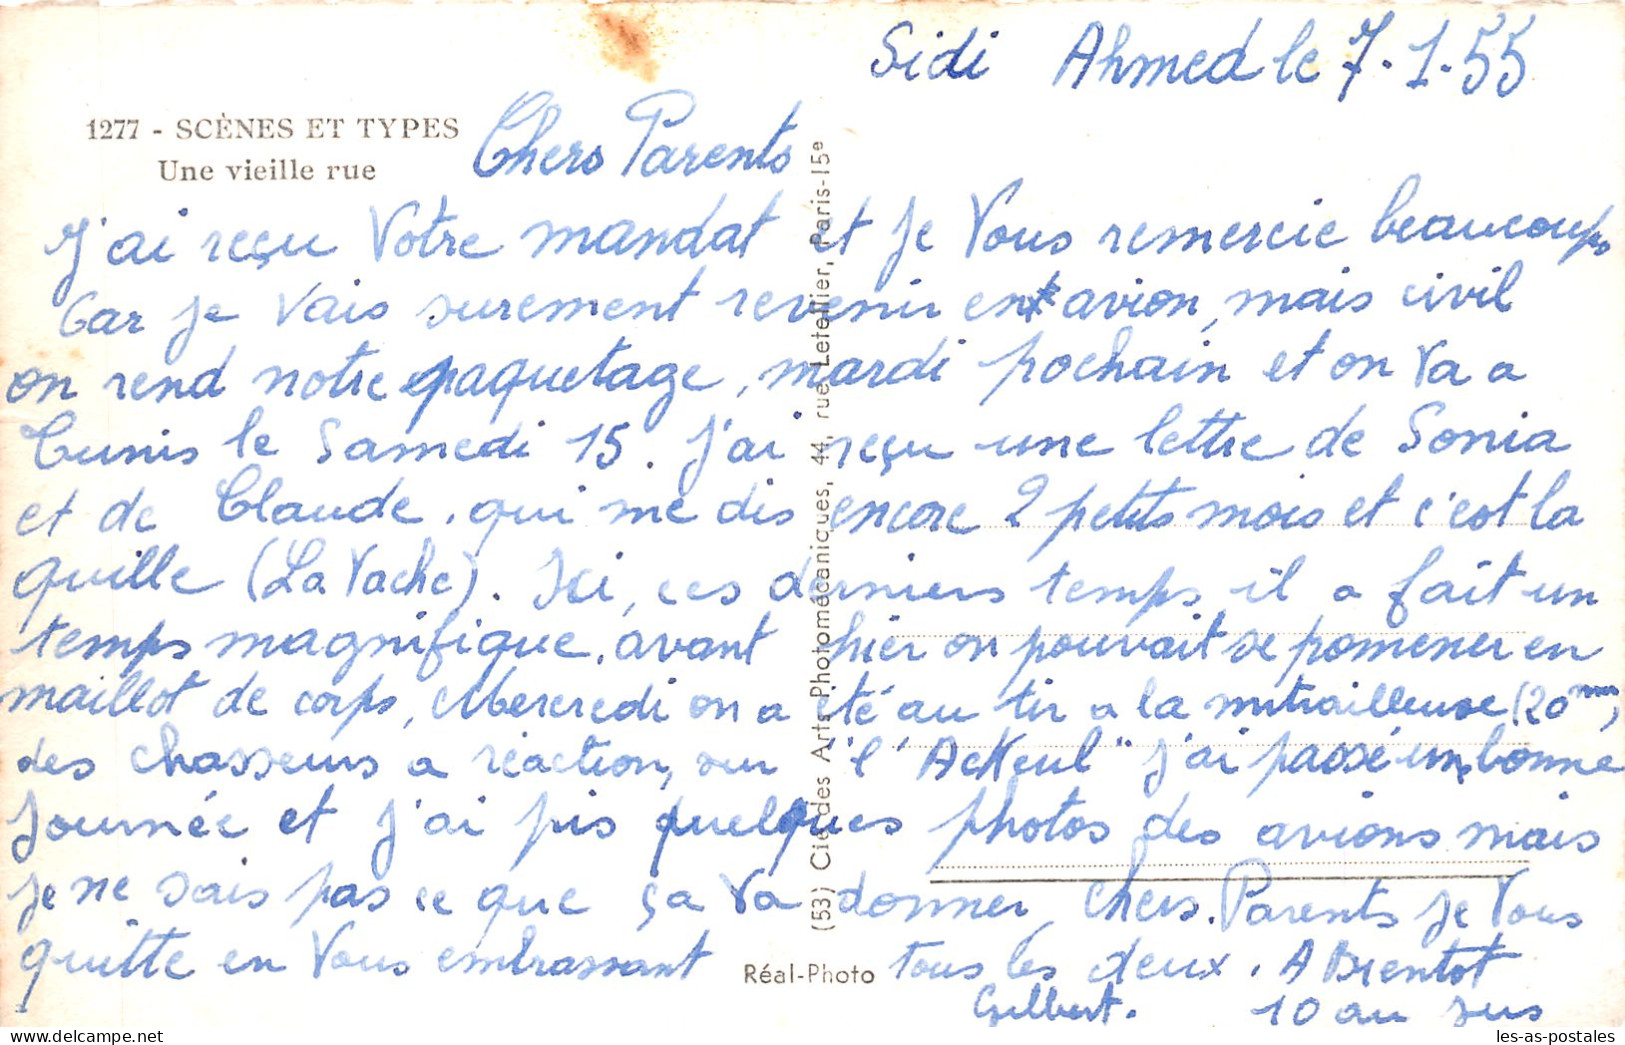 Sidi Ahmed le 7.1.55
1277 - SCÈNES ET TYPES
Une vieille rue
Chers Parents
J'ai reçu Votre mandat et je Vous remercie beaucoups
Car je Vais surement revenir en avion, mais civil
on rend notre paquetage, mardi pochain et on Va a
Tunis le Samedi 15. J'ai reçu une lettre de Sonia
et de Claude, qui me dis encore 2 petits mois et c'est la
quille (La Vache). Ici, ces derniers temps il a fait un
temps magnifique, avant hier on pouvait se pomener en
maillot de corps, Mercredi on a été au tir a la mitrailleuse (20 mm)
des chasseurs a réaction, sur l' "Ackeul" j'ai passé un bonne
Journée et j'ai pis quelques photos des avions mais
je ne sais pas ce que ça Va donner, Chers Parents je Vous
quitte en Vous embrassant tous les deux. A Bientot
Gilbert. 10 au jus
(53) Cie des Arts Photomécaniques, 44, rue Letellier, Paris-15e
Réal-Photo
les-as-postales